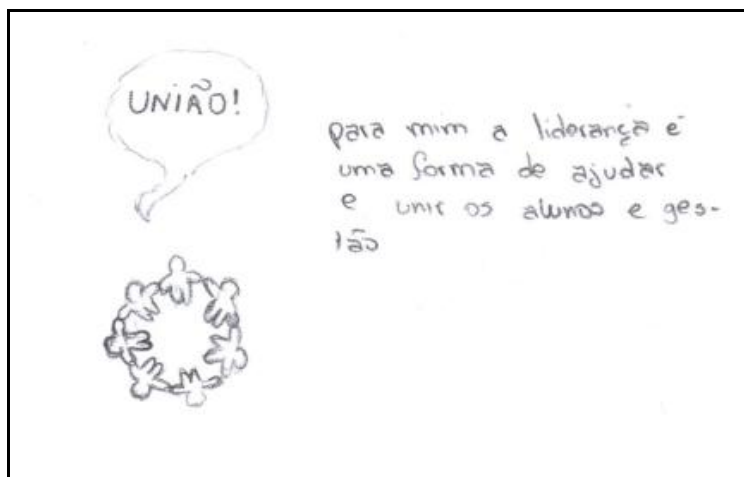 UNIÃO!
para mim a liderança é
uma forma de ajudar
e unir os alunos e ges-
tão